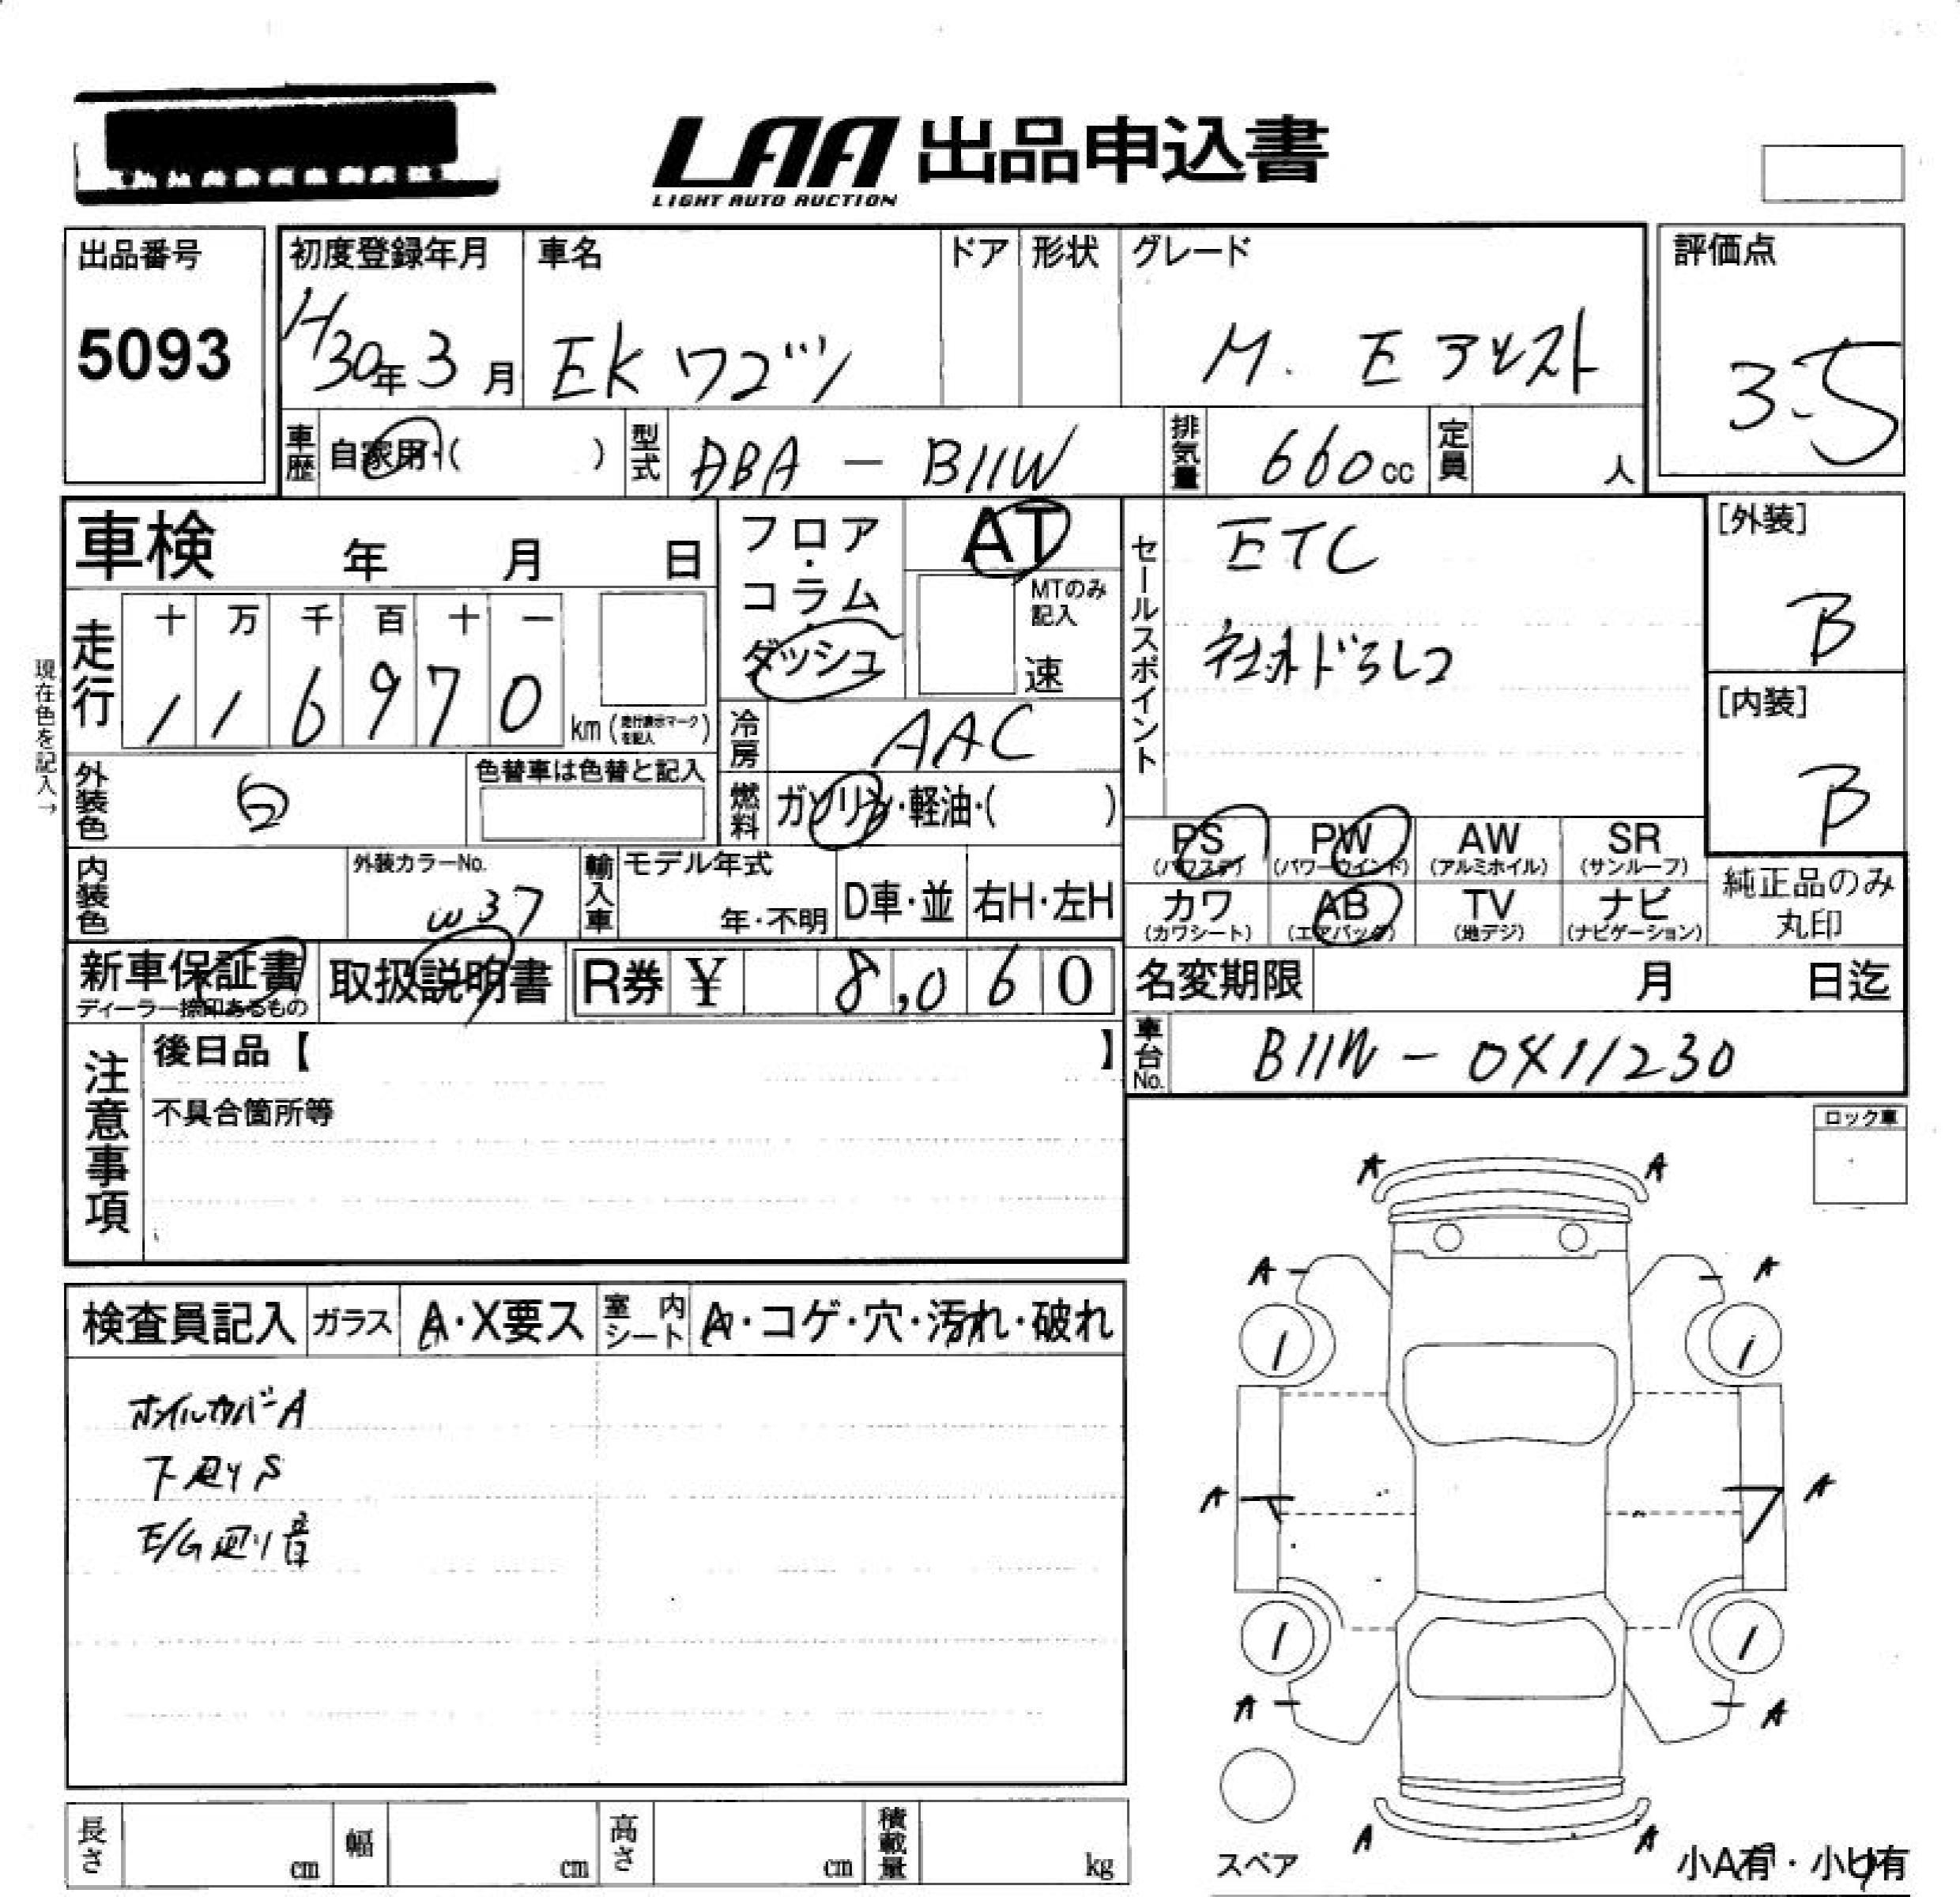 LAA 出品申込書
LIGHT AUTO AUCTION
出品番号
5093
初度登録年月
H30年3月
車名
EKワゴン
ドア
形状
グレード
M. Eアシスト
評価点
3.5
車歴
自家用・( )
型式
DBA - B11W
排気量
660cc
定員
人
車検 年 月 日
フロア・コラム・ダッシュ
AT
MTのみ記入
速
セールスポイント
ETC
社外ドラレコ
[外装]
B
[内装]
B
現在色を記入→
走行
十 万 千 百 十 一
1 1 6 9 7 0
km (走行表示マークを記入)
冷房
AAC
外装色
白
色替車は色替と記入
燃料
ガソリン・軽油・( )
PS
(パワステ)
PW
(パワーウインド)
AW
(アルミホイル)
SR
(サンルーフ)
内装色
外装カラーNo.
W37
輸入車
モデル年式
年・不明
D車・並
右H・左H
カワ
(カワシート)
AB
(エアバッグ)
TV
(地デジ)
ナビ
(ナビゲーション)
純正品のみ
丸印
新車保証書
ディーラー捺印あるもの
取扱説明書
R券 ¥ 8,060
名変期限 月 日迄
車台No.
B11W - 0411230
注意事項
後日品【 】
不具合箇所等
ロック車
検査員記入
ガラス
A・X要ス
室内シート
A・コゲ・穴・汚れ・破れ
ホイルカバーA
下廻りS
E/G廻り音
A A
A A
1 1
A A
1 1
A A
A A
スペア
小A有・小U有
長さ
cm
幅
cm
高さ
cm
積載量
kg